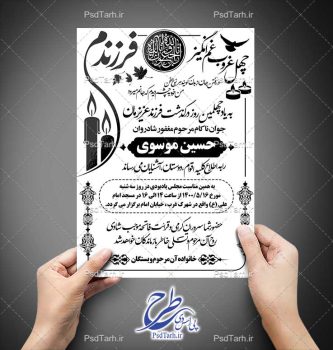 PsdTarh.ir
چهل غروب غم انگیز
فرزندم
به یاد چهلمین روز درگذشت فرزند عزیزمان
جوان ناکام مرحوم مغفور شادروان
حسین موسوی
را به اطلاع کلیه اقوام، دوستان، آشنایان می رساند
به همین مناسبت مجلس یادبودی در روز سه شنبه
مورخ ۱۴۰۰/۵/۱۶ از ساعت ۱۴ الی ۱۶ در مسجد امام
علی (ع) واقع در شهرک غرب، خیابان امام برگزار می گردد.
حضور شما سروران گرامی و قرائت فاتحه موجب شادی
روح آن مرحوم و تسلی خاطر بازماندگان خواهد شد
خانواده آن مرحوم و بستگان
طرح
PsdTarh.ir